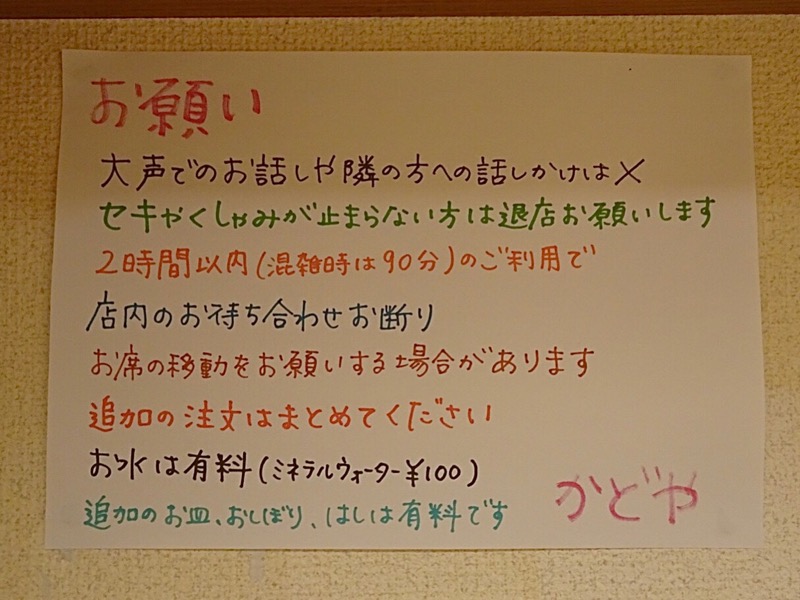 お願い
大声でのお話しや隣の方への話しかけは×
セキやくしゃみが止まらない方は退店お願いします
2時間以内(混雑時は90分)のご利用で
店内のお待ち合わせお断り
お席の移動をお願いする場合があります
追加の注文はまとめてください
お水は有料(ミネラルウォーター¥100)
追加のお皿、おしぼり、はしは有料です
かどや